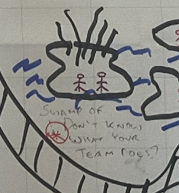 SWAMP OF
DON'T KNOW
WHAT YOUR
TEAM DOES?